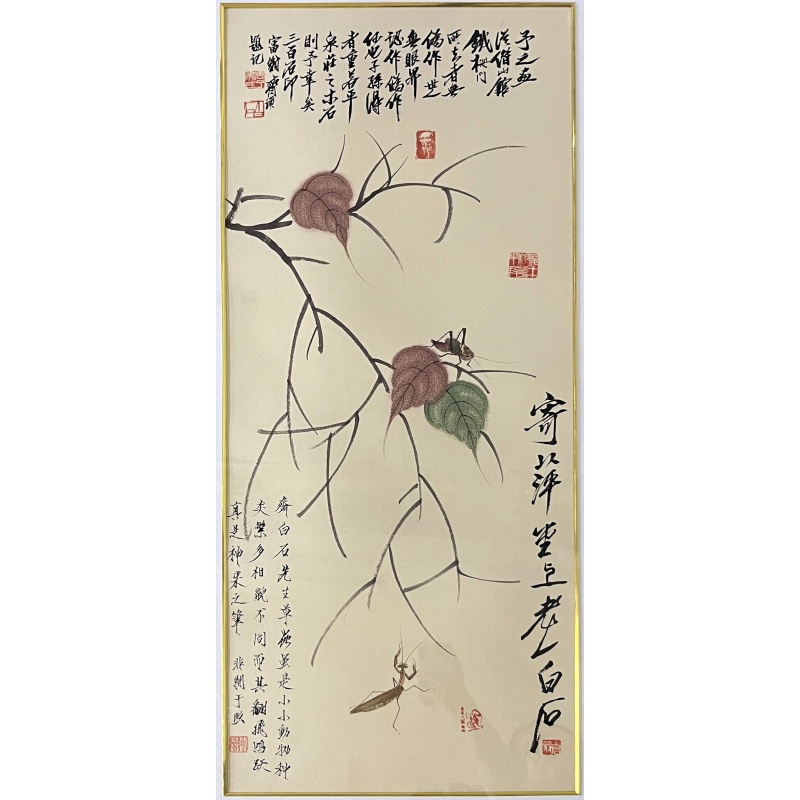 予之画
從借山館
鐵柵門
所去者無
偽作世之
無眼界
認作偽作
任也子孫得
者重若平
泉莊之木石
則予幸矣
三百石印
富翁齊璜
題記
寄萍堂上老人白石
齊白石先生草蟲虽是小小動物种
类繁多相貌不同而其翻飛鳴跃
真是神来之筆 非闇于照